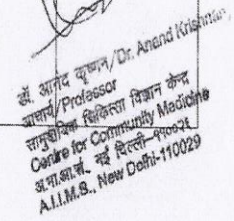 डॉ. आनंद कृष्णन/Dr. Anand Krishnan
आचार्य/Professor
सामुदायिक चिकित्सा विज्ञान केन्द्र
Centre for Community Medicine
अ.भा.आ.सं. नई दिल्ली-११००२९
A.I.I.M.S., New Delhi-110029